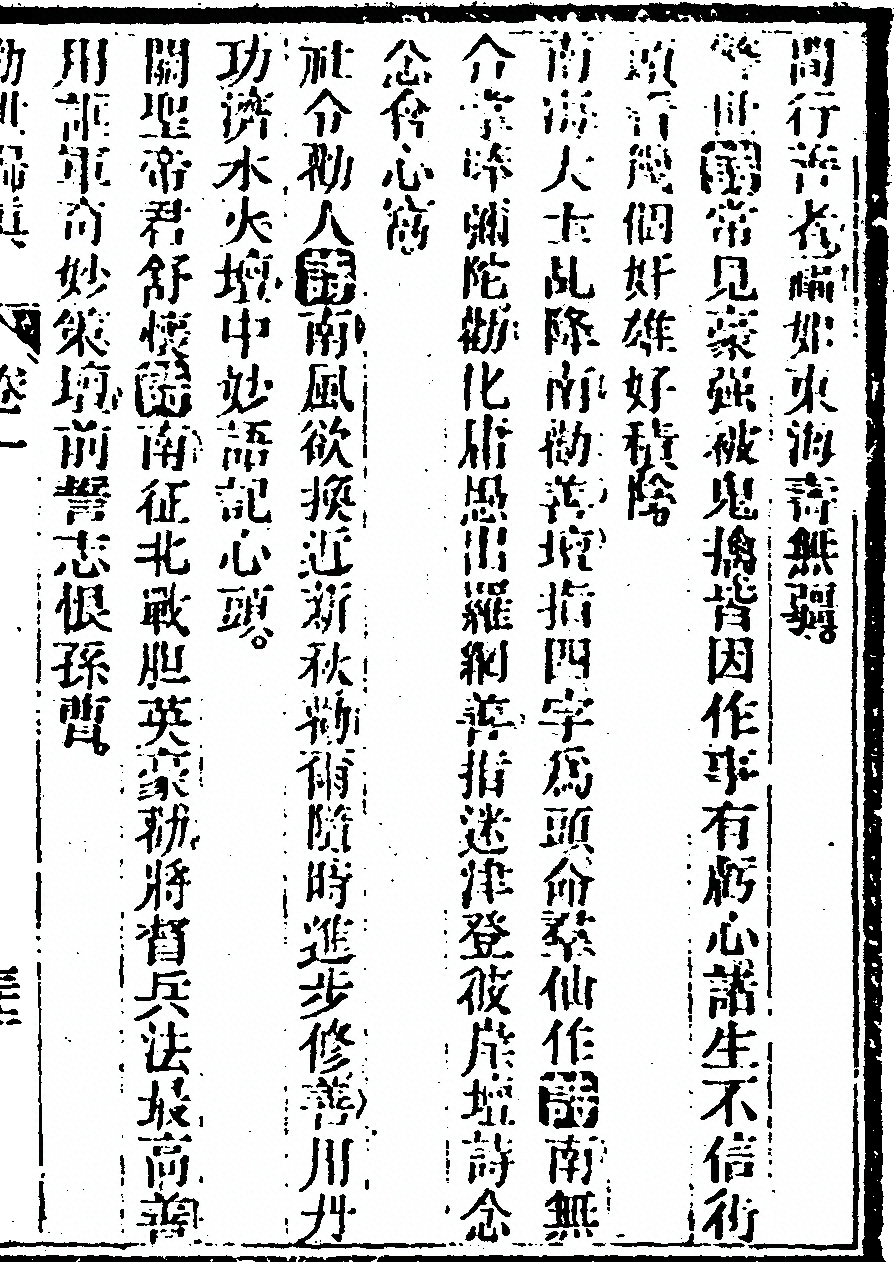 間行善者福如東海壽無疆
警世詩常見豪強被鬼擒皆因作事有虧心諸生不信術
頭看幾個奸雄好積陰
南海大士乩降南勸善壇指四字為頭命羣仙作詩南無
介字啐彌陀勸化庸愚出羅網善指迷津登彼岸壇詩念
念會心窩
社令勸人詩南風欲換近新秋勸爾隨時進步修善用廾
功濟水火壇中妙語記心頭
關聖帝君舒懷詩南征北戰胆英豪勸將督兵法最高善
用詎軍奇妙策壇前誓志恨孫曹
勸世歸真 卷一